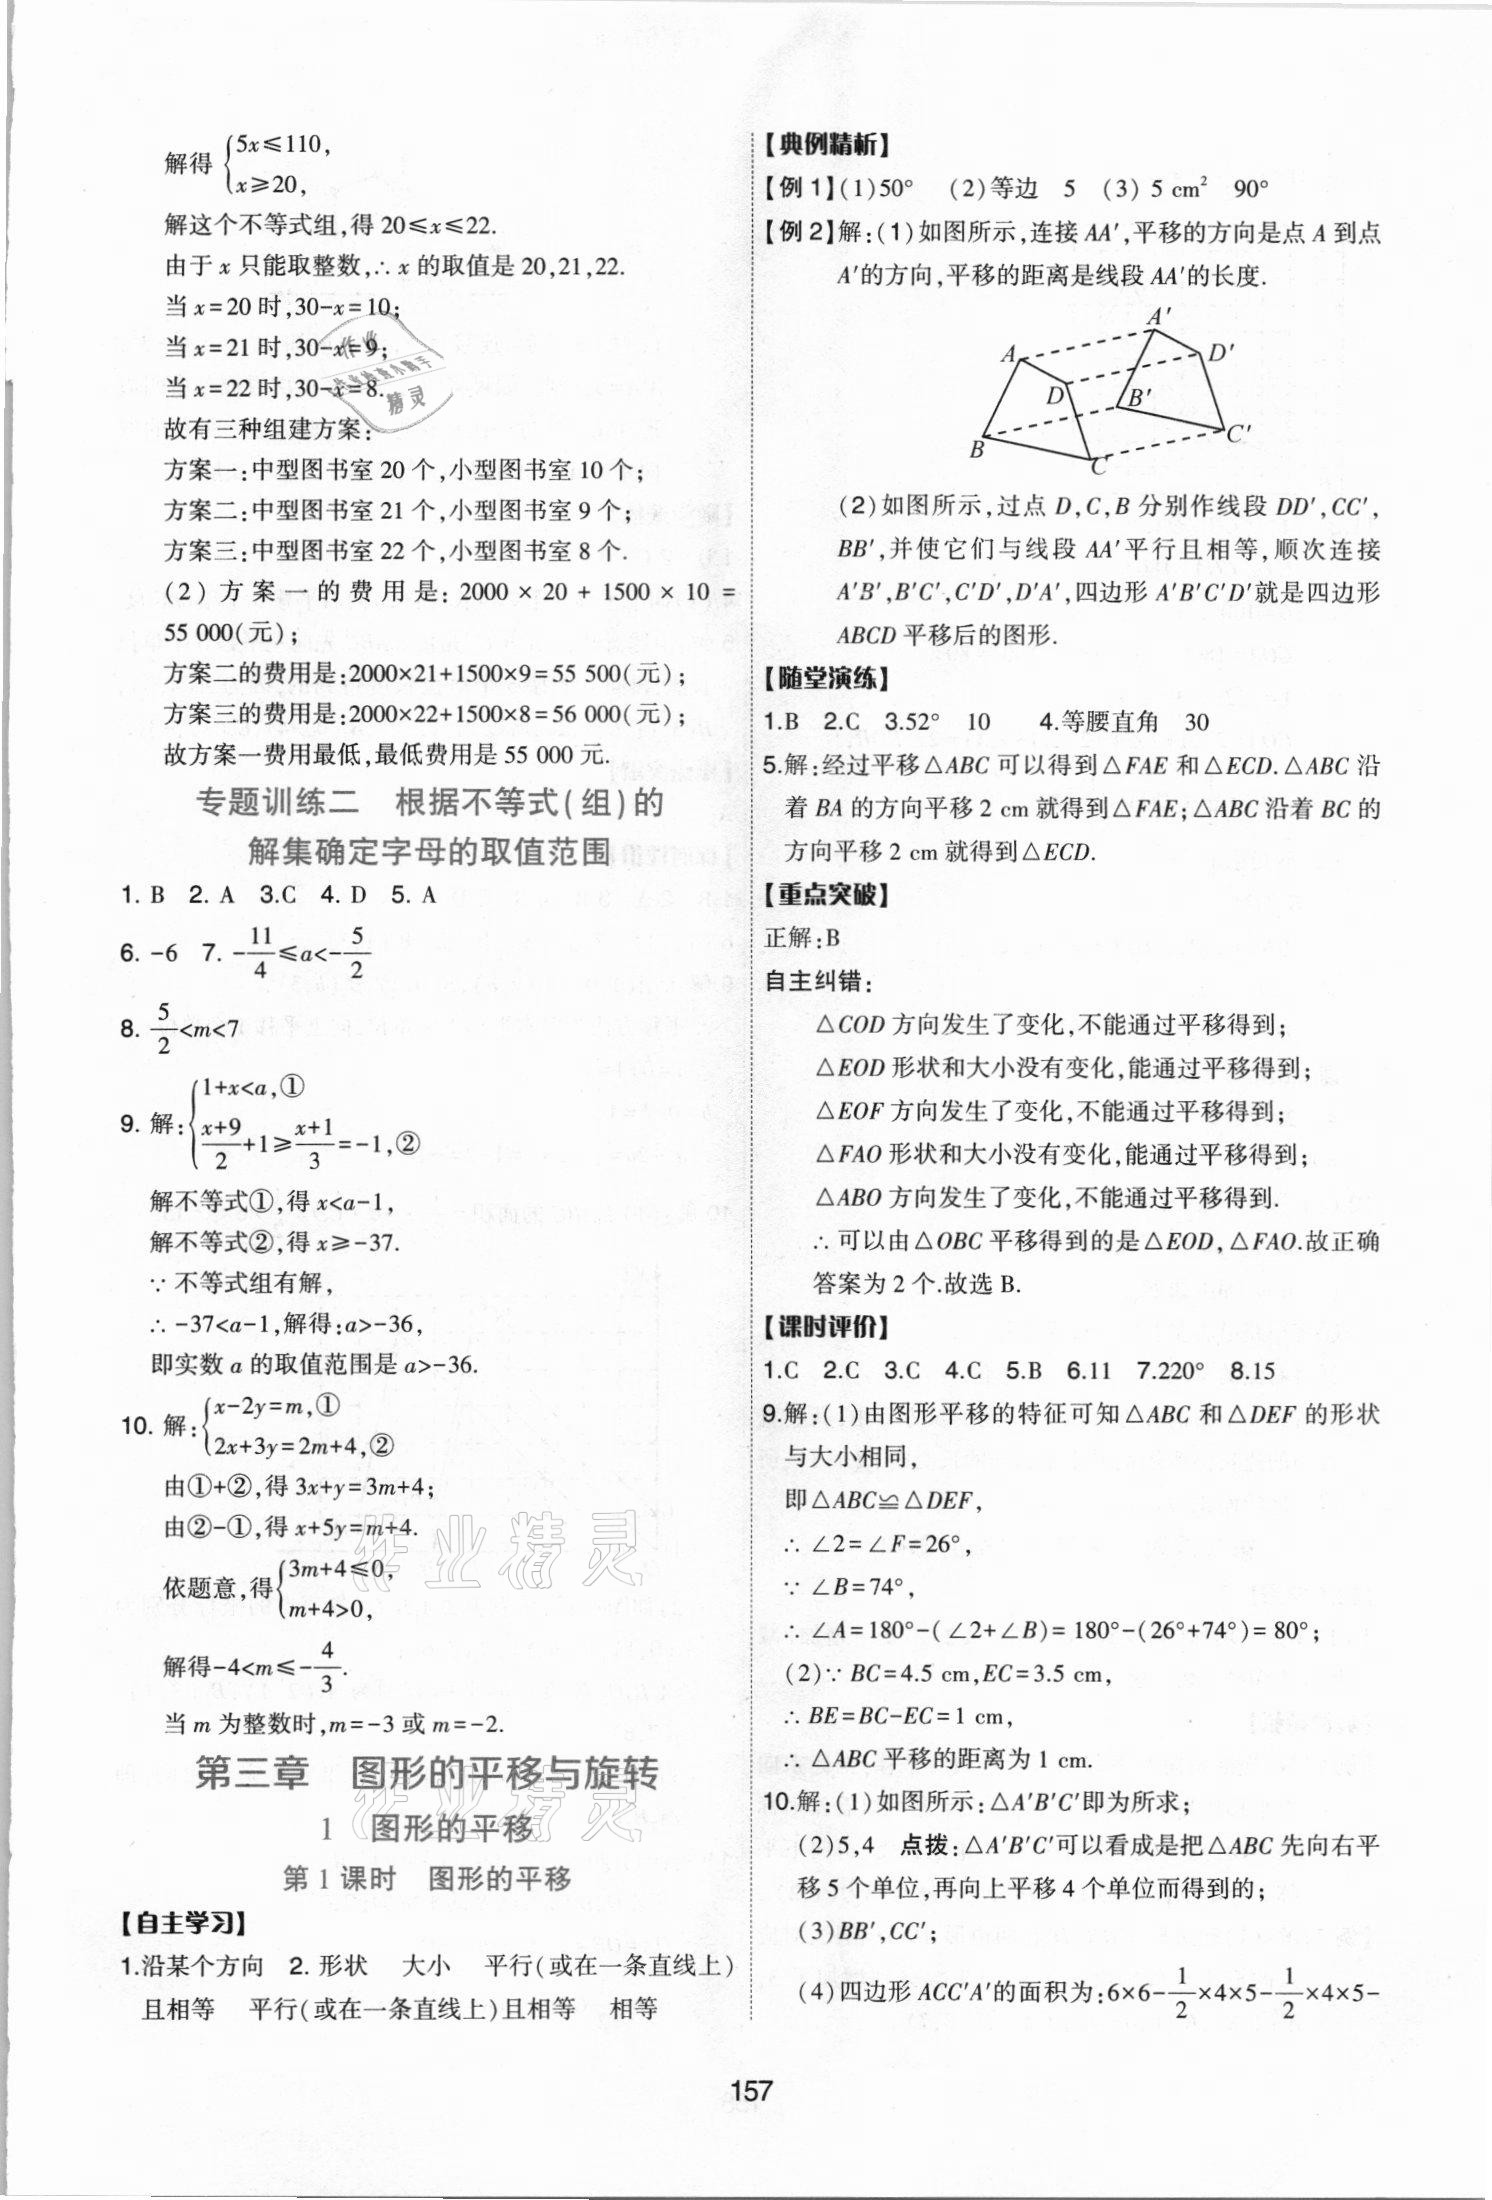 解得{5x≤110,
x≥20,
解这个不等式组,得 20≤x≤22.
由于 x 只能取整数,∴ x 的取值是 20,21,22.
当 x=20 时,30-x=10;
当 x=21 时,30-x=9;
当 x=22 时,30-x=8.
故有三种组建方案:
方案一:中型图书室 20 个,小型图书室 10 个;
方案二:中型图书室 21 个,小型图书室 9 个;
方案三:中型图书室 22 个,小型图书室 8 个.
(2) 方案一的费用是: 2000 × 20 + 1500 × 10 =
55 000(元);
方案二的费用是:2000×21+1500×9=55 500(元);
方案三的费用是:2000×22+1500×8=56 000(元);
故方案一费用最低,最低费用是 55 000 元.
专题训练二 根据不等式(组)的
解集确定字母的取值范围
1. B 2. A 3.C 4. D 5. A
6. -6 7. -11/4≤a<-5/2
8. 5/2<m<7
9. 解:{1+x<a,①
(x+9)/2+1≥(x+1)/3=-1,②
解不等式①,得 x<a-1,
解不等式②,得 x≥-37.
∵ 不等式组有解,
∴ -37<a-1,解得:a>-36,
即实数 a 的取值范围是 a>-36.
10. 解:{x-2y=m,①
2x+3y=2m+4,②
由①+②,得 3x+y=3m+4;
由②-①,得 x+5y=m+4.
依题意,得{3m+4≤0,
m+4>0,
解得-4<m≤-4/3.
当 m 为整数时,m=-3 或 m=-2.
第三章 图形的平移与旋转
1 图形的平移
第 1 课时 图形的平移
【自主学习】
1.沿某个方向 2. 形状 大小 平行(或在一条直线上)
且相等 平行(或在一条直线上)且相等 相等
【典例精析】
【例 1】(1)50° (2)等边 5 (3) 5 cm² 90°
【例 2】解:(1)如图所示,连接 AA′,平移的方向是点 A 到点
A′的方向,平移的距离是线段 AA′的长度.
A′
A
D′
D
B′
C′
B
C
(2)如图所示,过点 D,C,B 分别作线段 DD′,CC′,
BB′,并使它们与线段 AA′平行且相等,顺次连接
A′B′,B′C′,C′D′,D′A′,四边形 A′B′C′D′就是四边形
ABCD 平移后的图形.
【随堂演练】
1.B 2.C 3.52° 10 4.等腰直角 30
5.解:经过平移△ABC 可以得到△FAE 和△ECD.△ABC 沿
着 BA 的方向平移 2 cm 就得到△FAE;△ABC 沿着 BC 的
方向平移 2 cm 就得到△ECD.
【重点突破】
正解:B
自主纠错:
△COD 方向发生了变化,不能通过平移得到;
△EOD 形状和大小没有变化,能通过平移得到;
△EOF 方向发生了变化,不能通过平移得到;
△FAO 形状和大小没有变化,能通过平移得到;
△ABO 方向发生了变化,不能通过平移得到.
∴ 可以由△OBC 平移得到的是△EOD,△FAO.故正确
答案为 2 个.故选 B.
【课时评价】
1.C 2.C 3.C 4.C 5.B 6.11 7.220° 8.15
9.解:(1)由图形平移的特征可知△ABC 和△DEF 的形状
与大小相同,
即△ABC≌△DEF,
∴ ∠2=∠F=26°,
∵ ∠B=74°,
∴ ∠A=180°-(∠2+∠B)=180°-(26°+74°)=80°;
(2)∵ BC=4.5 cm,EC=3.5 cm,
∴ BE=BC-EC=1 cm,
∴ △ABC 平移的距离为 1 cm.
10.解:(1)如图所示:△A′B′C′即为所求;
(2)5,4 点拨:△A′B′C′可以看成是把△ABC 先向右平
移 5 个单位,再向上平移 4 个单位而得到的;
(3)BB′,CC′;
(4)四边形 ACC′A′的面积为:6×6-1/2×4×5-1/2×4×5-
157
作业精灵
作业精灵
作业
精灵